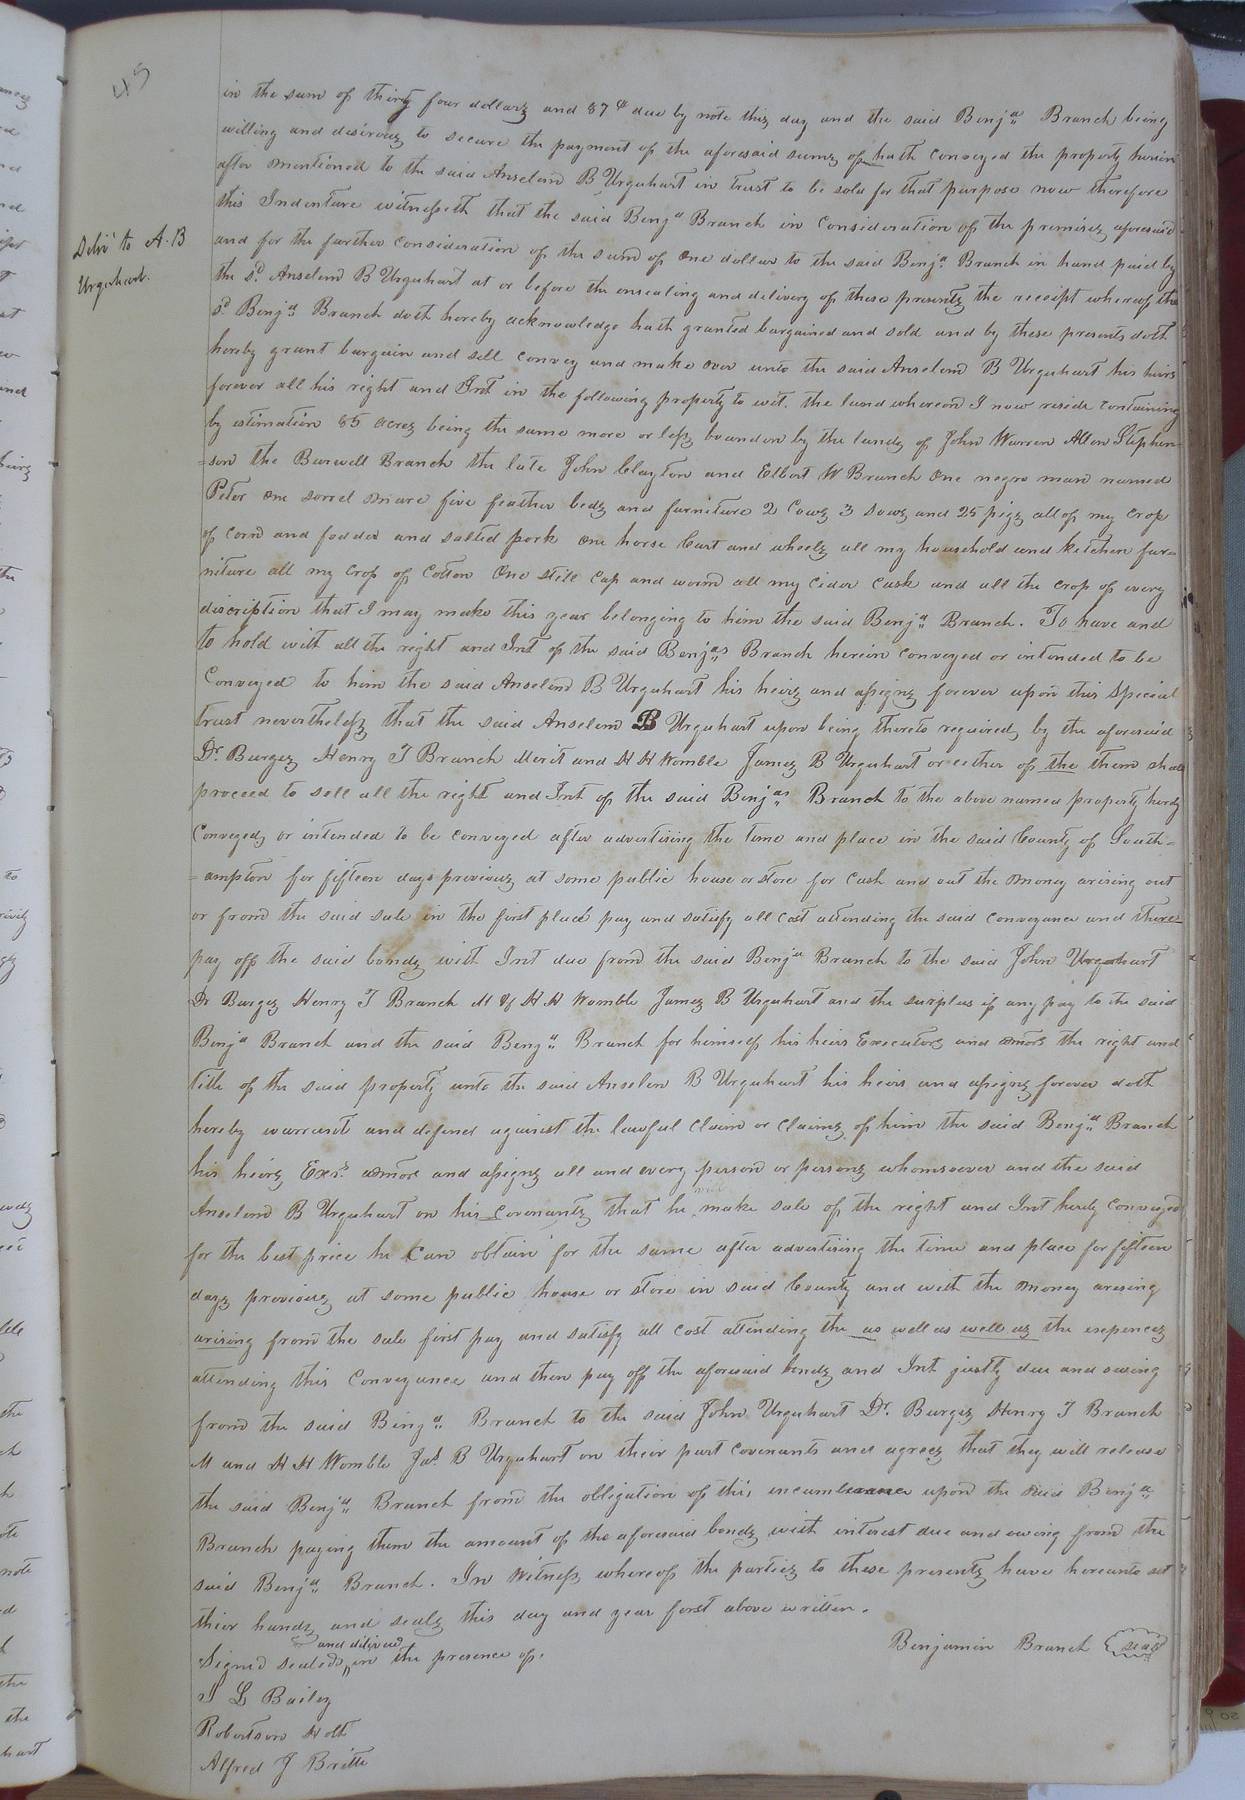 48
in the sum of thirty four dollars and 87 cts due by note this day and the said Benja Branch being
willing and desirous to secure the payment of the aforesaid sums of hath conveyed the property herein
after mentioned to the said Anselm B Urquhart in trust to be sold for that purpose now therefore
this Indenture witnesseth that the said Benja Branch in consideration of the premises aforesaid
Deliv to A. B
Urquhart.
and for the further consideration of the sum of One dollar to the said Benja Branch in hand paid by
the sd. Anselm B Urquhart at or before the ensealing and delivery of these presents the receipt whereof the
sd Benja Branch doth hereby acknowledge hath granted bargained and sold and by these presents doth
hereby grant bargain and sell convey and make over unto the said Anselm B Urquhart his heirs
forever all his right and Int in the following property to wit. the land whereon I now reside containing
by estimation 85 acres being the same more or less bounden by the lands of John Warren Allen Stephen=
=son the Burwell Branch the late John Clayton and Elbert W Branch One negro man named
Peter one sorrel mare five feather beds and furniture 2 Cows 3 sows and 25 pigs all of my crop
of corn and fodder and salted pork one horse Cart and wheels all my household and kitchen fur=
niture all my crop of Cotton One still cap and worm all my cider cask and all the crop of every
discription that I may make this year belonging to him the said Benja Branch. To have and
to hold with all the right and Int of the said Benjas Branch herein conveyed or intended to be
Conveyed to him the said Anselm B Urquhart his heirs and assigns forever upon this special
trust nevertheless that the said Anselm B Urquhart upon being thereto required by the aforesaid
Dr. Burges Henry T Branch Merit and H H Womble James B Urquhart or either of the them shall
proceed to sell all the right and Int of the said Benjas Branch to the above named property hereby
Conveyed or intended to be conveyed after advertising the time and place in the said County of South=
=ampton for fifteen days previous at some public house or store for cash and out the money arising out
or from the said sale in the first place pay and satisfy all cost attending the said conveyance and there=
pay off the said bonds with Int due from the said Benja Branch to the said John Urquhart
Dr Burges Henry T Branch M & H H Womble James B Urquhart and the surplus if any pay to the said
Benja Branch and the said Benja Branch for himself his heirs Executors and admors the right and
title of the said property unto the said Anselm B Urquhart his heirs and assigns forever doth
hereby warrant and defend against the lawful claim or claims of him the said Benja Branch
his heirs Exrs. admors and assigns all and every person or persons whomsoever and the said
Anselm B Urquhart on his covenants that he will make sale of the right and Int hereby conveyed
for the best price he Can obtain for the same after advertising the time and place for fifteen
days previous at some public house or store in said County and with the money arising
arising from the sale first pay and satisfy all cost attending the as well as well as the expences
attending this Conveyance and then pay off the aforesaid bonds and Int justly due and owing
from the said Benja Branch to the said John Urquhart Dr. Burges Henry T Branch
M and H H Womble Jas B Urquhart on their part covenants and agrees that they will release
the said Benja Branch from the obligation of this incumberance upon the said Benja
Branch paying them the amount of the aforesaid bonds with interest due and owing from the
said Benja Branch. In Witness whereof the parties to these presents have hereunto set
thier hands and seals this day and year first above written.
Benjamin Branch seal
Signed sealed and dilivered in the presence of.
L Bailey
Robertson Holt
Alfred J Britt